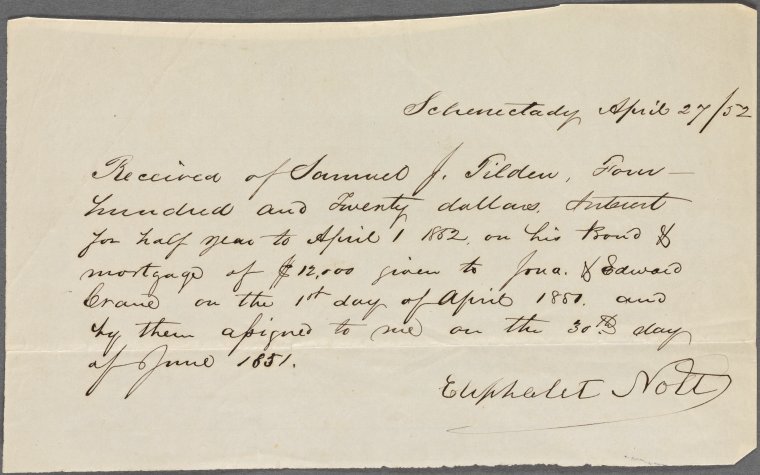 Schenectady April 27/52
Received of Samuel J. Tilden, Four-
hundred and Twenty dollars, Interest
for half year to April 1 1852, on his Bond &
mortgage of $12,000 given to Jona. & Edward
Crane on the 1st day of April 1851. and
by them assigned to me on the 30th day
of June 1851.
Eliphalet Nott